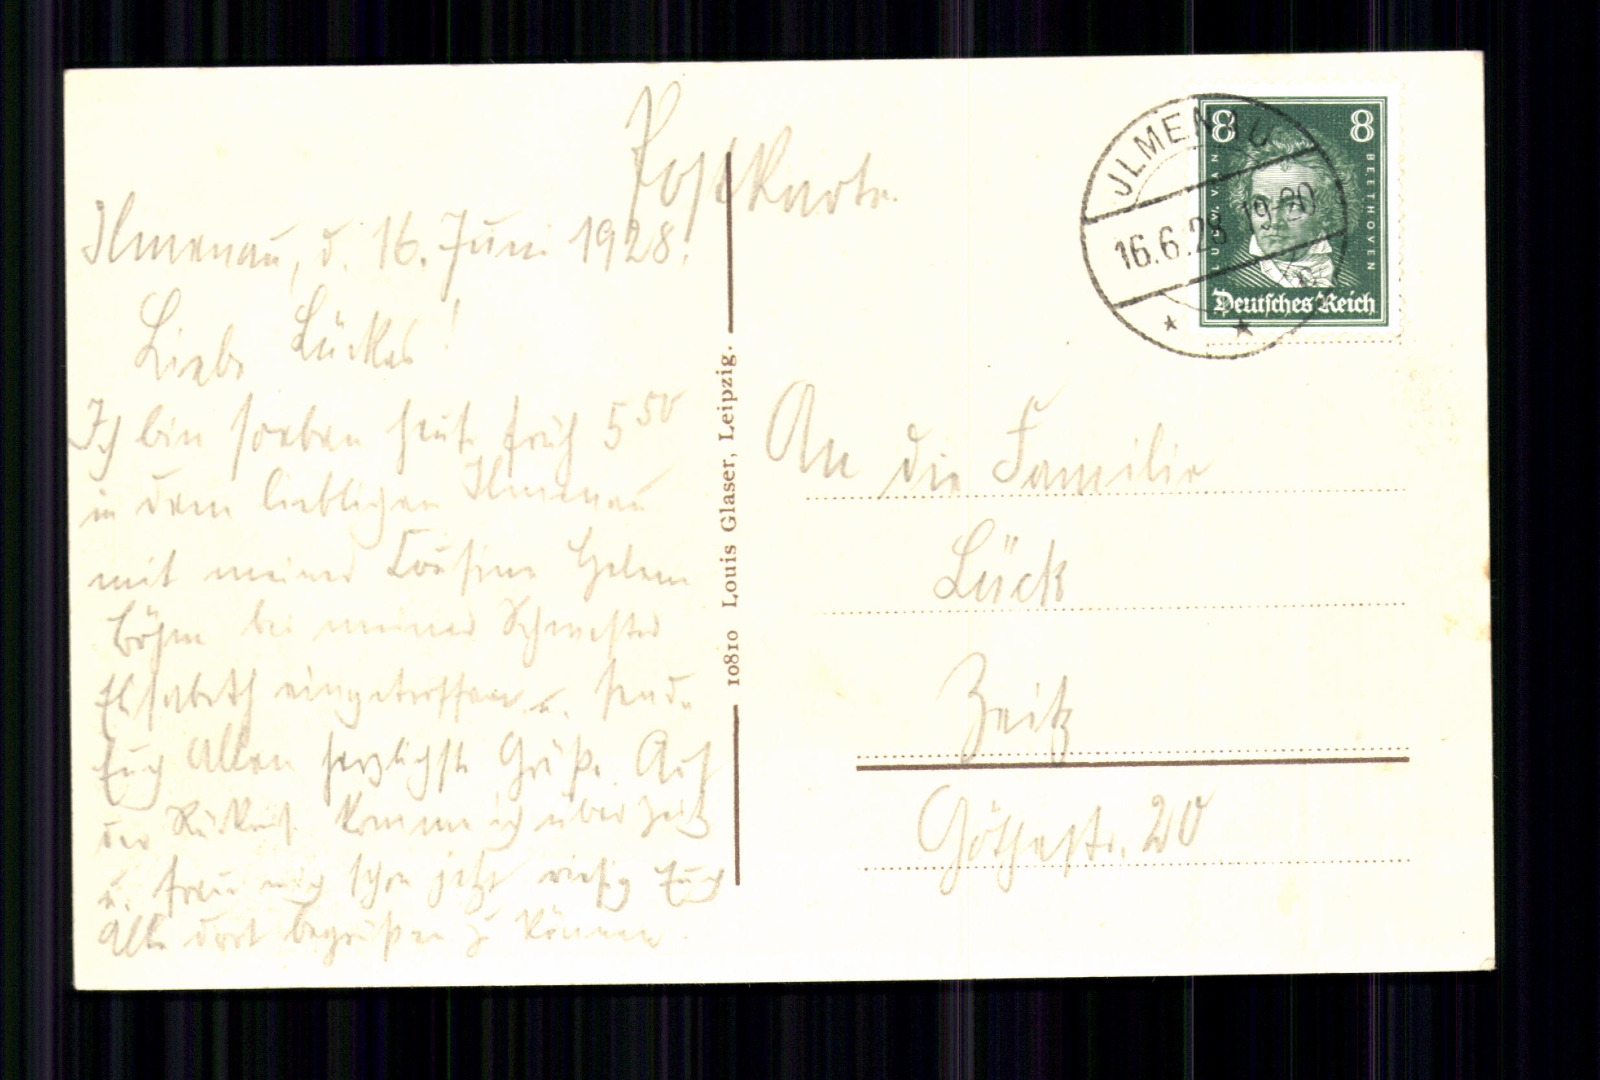 Postkarte.
Ilmenau, d. 16. Juni 1928!
Liebe Lücks!
Ich bin soeben heute früh 5 50
in dem lieblichen Ilmenau
mit meiner Cousine Helene
Böhm bei meiner Schwester
Elisabeth eingetroffen u. sende
Euch Allen herzlichste Grüße. Auf
der Rückreise komme ich über Zeitz
u. freue mich schon jetzt riesig Euch
Alle dort begrüßen zu können.
10810 Louis Glaser, Leipzig.
JLMENAU
16.6.28 19-20
8 8
LUDW. VAN BEETHOVEN
Deutsches Reich
An die Familie
Lück
Zeitz
Göthestr. 20